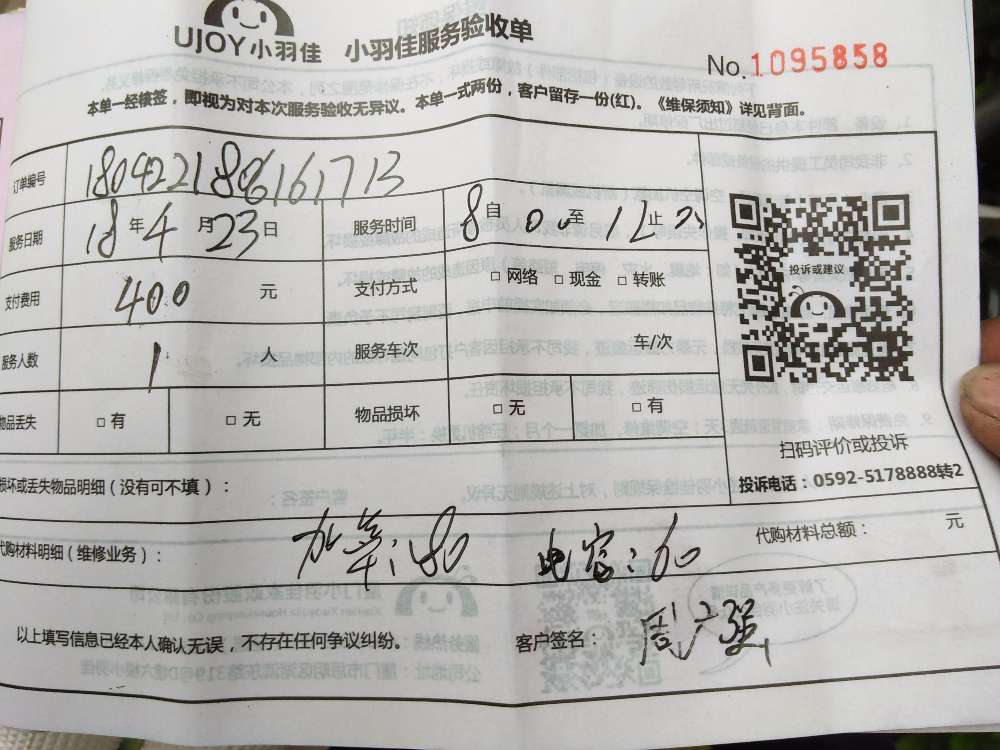 UJOY小羽佳 小羽佳服务验收单
No.1095858
本单一经核签，即视为对本次服务验收无异议。本单一式两份，客户留存一份(红)。《维保须知》详见背面。
订单编号 1804221806161713
服务日期 18年4月23日 服务时间 8自 00至 12止
支付费用 400 元 支付方式 □网络 □现金 □转账
服务人数 1 人 服务车次 车/次
物品丢失 □有 □无 物品损坏 □无 □有
投诉或建议
扫码评价或投诉
投诉电话：0592-5178888转2
损坏或丢失物品明细（没有可不填）：
代购材料明细（维修业务）： 加苯：80 电容：60 代购材料总额： 元
以上填写信息已经本人确认无误，不存在任何争议纠纷。 客户签名：